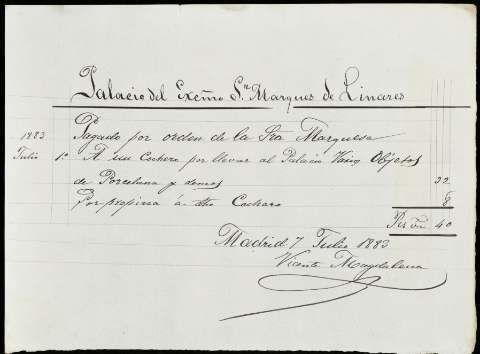 Palacio del Exćmo Sr Marques de Linares
Pagado por orden de la Sra Marquesa
1883
Julio 1º A un Cochero por llevar al Palacio Varios Objetos
de Porcelana y demas 32
Por propina á dho Cochero 8
Rs Von 40
Madrid 7 Julio 1883
Vicente Magdalena